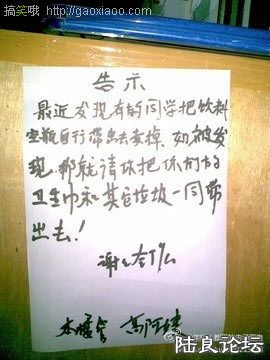 搞笑哦 http://gaoxiaoo.com
告示
最近发现有的同学把饮料
空瓶自行带出去卖掉,如被发
现,那就请你把你们的
卫生巾和其它垃圾一同带
出去!
谢谢合作
本楼管
陆良论坛